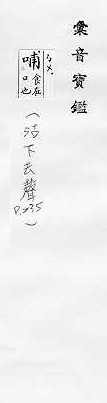 彙音寶鑑
ㄅㄨ˪
哺 食在口也
(沽下去聲
P.235)